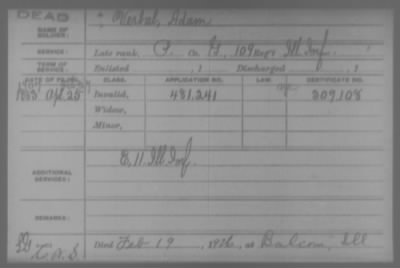 DEAD
NAME OF SOLDIER:
Verbal, Adam
SERVICE: Late rank, P. Co. G, 109 Reg't Ill Inf
TERM OF SERVICE: Enlisted , 1 Discharged , 1
DATE OF FILING. CLASS. APPLICATION NO. LAW. CERTIFICATE NO.
Invalid, 481,241 309,108
Widow,
Minor,
E, 11 Ill Inf.
ADDITIONAL SERVICES:
REMARKS:
Died Feb 19, 1926, at Balcom, Ill